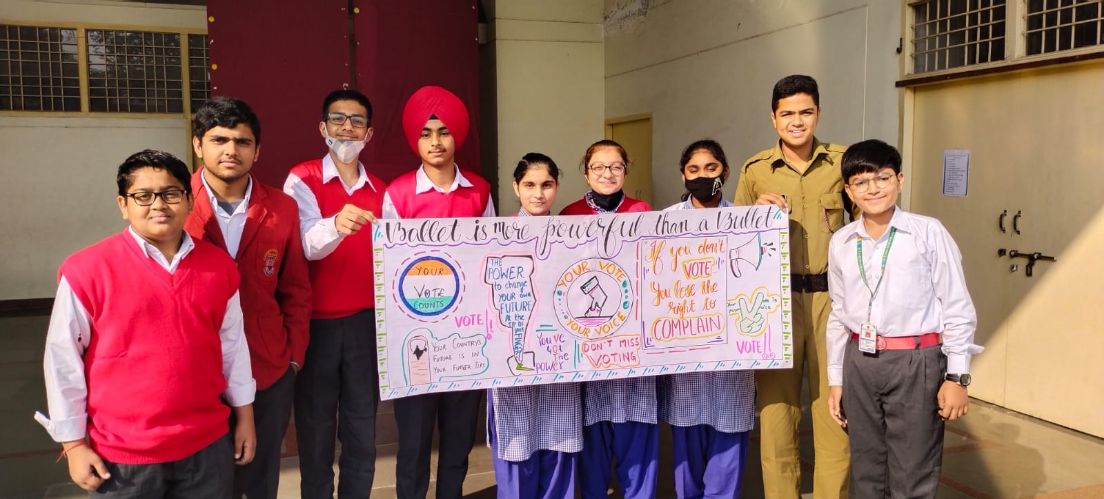 Ballet is more powerful than a Bullet
YOUR
VOTE
COUNTS
VOTE!
YOUR COUNTRY'S
FUTURE IS IN
YOUR FINGER TIPS
THE
POWER
to change
YOUR OWN
FUTURE
At the
You've
got the
power
YOUR VOTE
YOUR VOICE
DON'T MISS
VOTING
If you don't
VOTE
You lose the
right to
COMPLAIN
VOTE!